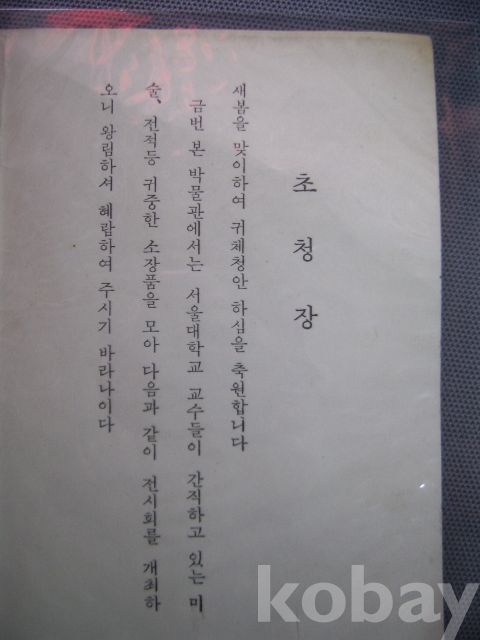 초청장
새봄을 맞이하여 귀체청안 하심을 축원합니다
금번 본 박물관에서는 서울대학교 교수들이 간직하고 있는 미
술, 전적등 귀중한 소장품을 모아 다음과 같이 전시회를 개최하
오니 왕림하셔 혜람하여 주시기 바라나이다
kobay